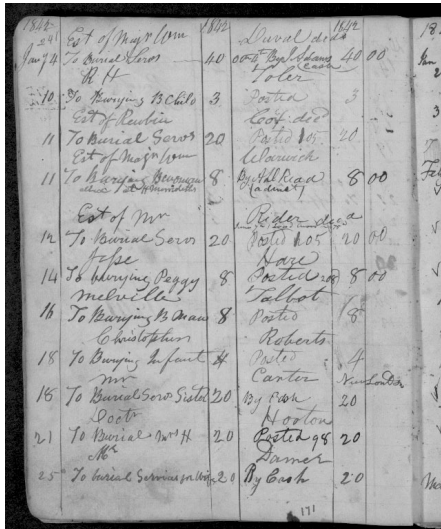 1842 1842 1842
Est of Majr Wm Duval decd
Jany 4 To Burial Servs 40 00 By J Adams Cash 40 00
R H Toler
10 To Burying B Child 3 Posted 3
Est of Reubin Cox decd
11 To Burial Servs 20 Posted 105 20
Est of Majr Wm Warwick
11 To Burying 8 By Hal Read 8 00
(admst)
Est of Mr Rider decd
12 To Burial Servs 20 Posted 105 20 00
Jesse Hare
14 To burying Peggy 8 Posted 8 00
Melville Talbot
16 To Burying B Man 8 Posted 8
Christopher Roberts
18 To Burying Infant 4 Posted 4
Mr Carter New London
18 To Burial Servs Sister 20 By Cash 20
Doctr Hooton
21 To Burial Mrs H 20 Posted 98 20
Mr Damer
25 To burial Services for 20 By Cash 20
171